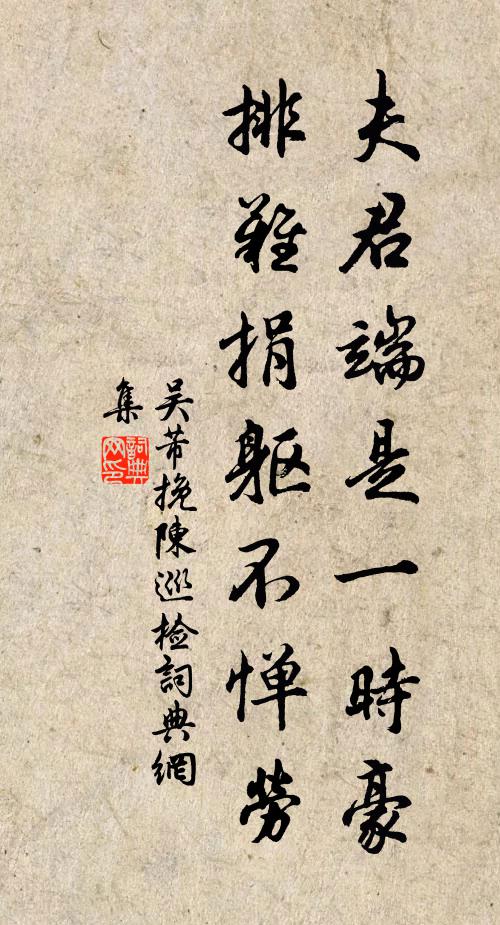 夫君端是一時豪
排難捐軀不惮勞
吳芾挽陳巡檢詞典網
集
詞典
网印